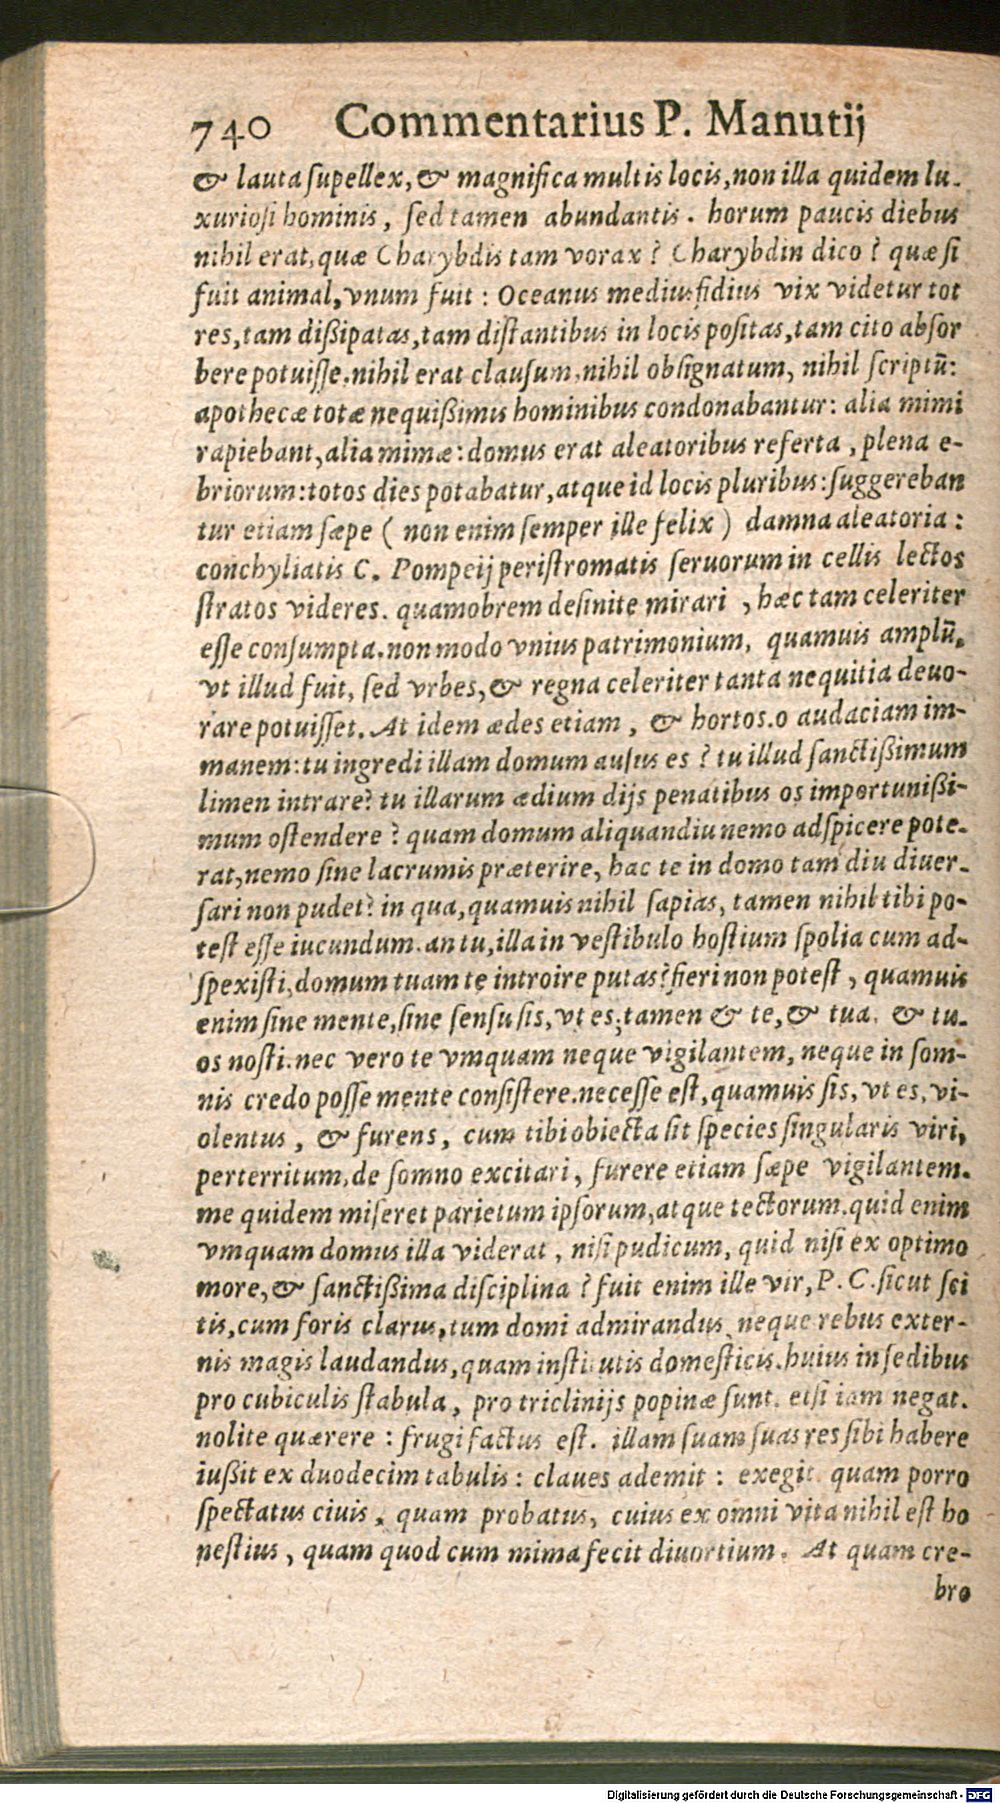 740 Commentarius P. Manutij
& lauta ſupellex, & magnifica multis locis, non illa quidem lu-
xurioſi hominis, ſed tamen abundantis. horum paucis diebus
nihil erat, quæ Charybdis tam vorax? Charybdin dico? quæ ſi
fuit animal, vnum fuit: Oceanus medius fidius vix videtur tot
res, tam dißipatas, tam diſtantibus in locis poſitas, tam cito abſor
bere potuiſſe. nihil erat clauſum, nihil obſignatum, nihil ſcriptū:
apothecæ totæ nequißimis hominibus condonabantur: alia mimi
rapiebant, alia mimæ: domus erat aleatoribus referta, plena e-
briorum: totos dies potabatur, atque id locis pluribus: ſuggereban
tur etiam ſæpe ( non enim ſemper ille felix ) damna aleatoria:
conchyliatis C. Pompeij periſtromatis ſeruorum in cellis lectos
ſtratos videres. quamobrem deſinite mirari , hæc tam celeriter
eſſe conſumpta. non modo vnius patrimonium, quamuis amplū,
vt illud fuit, ſed vrbes, & regna celeriter tanta nequitia deuo-
rare potuiſſet. At idem ædes etiam , & hortos. o audaciam im-
manem: tu ingredi illam domum auſus es? tu illud ſanctißimum
limen intrare? tu illarum ædium dijs penatibus os importunißi-
mum oſtendere? quam domum aliquandiu nemo adſpicere pote-
rat, nemo ſine lacrumis præterire, hac te in domo tam diu diuer-
ſari non pudet? in qua, quamuis nihil ſapias, tamen nihil tibi po-
teſt eſſe iucundum. an tu, illa in veſtibulo hoſtium ſpolia cum ad-
ſpexiſti, domum tuam te introire putas? fieri non poteſt, quamuis
enim ſine mente, ſine ſenſu ſis, vt es, tamen & te, & tua. & tu-
os noſti. nec vero te vmquam neque vigilantem, neque in ſom-
nis credo poſſe mente conſiſtere. neceſſe eſt, quamuis ſis, vt es, vi-
olentus, & furens, cum tibi obiecta ſit ſpecies ſingularis viri,
perterritum, de ſomno excitari, furere etiam ſæpe vigilantem.
me quidem miſeret parietum ipſorum, atque tectorum. quid enim
vmquam domus illa viderat, niſi pudicum, quid niſi ex optimo
more, & ſanctißima diſciplina? fuit enim ille vir, P. C. ſicut ſci
tis, cum foris clarus, tum domi admirandus, neque rebus exter-
nis magis laudandus, quam inſtitutis domeſticis. huius in ſedibus
pro cubiculis ſtabula, pro triclinijs popinæ ſunt. etſi iam negat.
nolite quærere: frugi factus eſt. illam ſuam ſuas res ſibi habere
iußit ex duodecim tabulis: claues ademit: exegit. quam porro
ſpectatus ciuis, quam probatus, cuius ex omni vita nihil eſt ho
neſtius, quam quod cum mima fecit diuortium. At quam cre-
bro
Digitalisierung gefördert durch die Deutsche Forschungsgemeinschaft - DFG